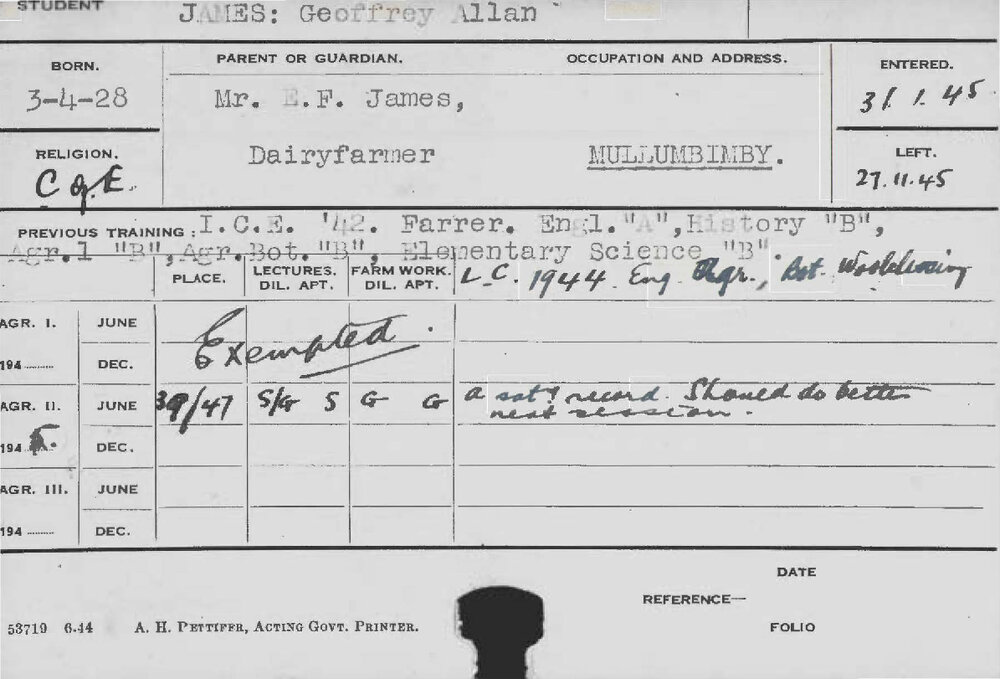 STUDENT JAMES: Geoffrey Allan
BORN. PARENT OR GUARDIAN. OCCUPATION AND ADDRESS. ENTERED.
3-4-28 Mr. E.F. James, 31.1.45
RELIGION. Dairyfarmer MULLUMBIMBY. LEFT.
C of E. 27.11.45
PREVIOUS TRAINING: I.C.E. '42. Farrer. Engl."A", History "B",
Agr.1 "B", Agr.Bot. "B", Elementary Science "B".
PLACE. LECTURES. FARM WORK. L.C. 1944 Eng. Agr., Bot. Woolclassing
DIL. APT. DIL. APT.
AGR. I. JUNE Exempted.
194 ......... DEC.
AGR. II. JUNE 39/47 S/G S G G a sat. record. Should do better
next session.
194 5. DEC.
AGR. III. JUNE
194 ......... DEC.
DATE
REFERENCE—
53719 6.44 A. H. PETTIFER, ACTING GOVT. PRINTER. FOLIO